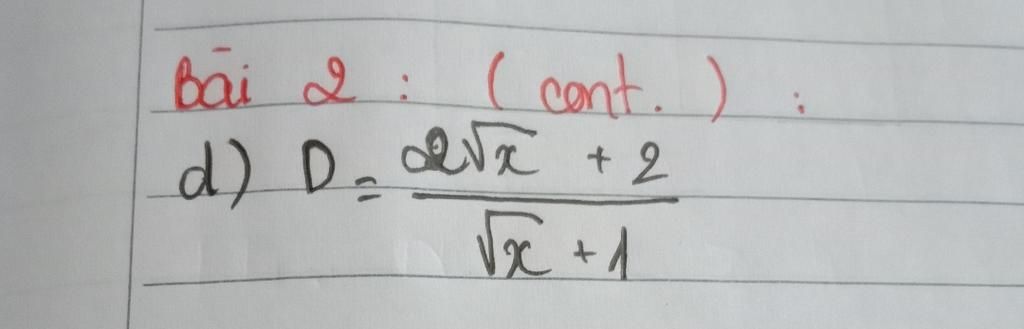 Bài 2 : ( cont. ) :
d) D = (2√x + 2) / (√x + 1)